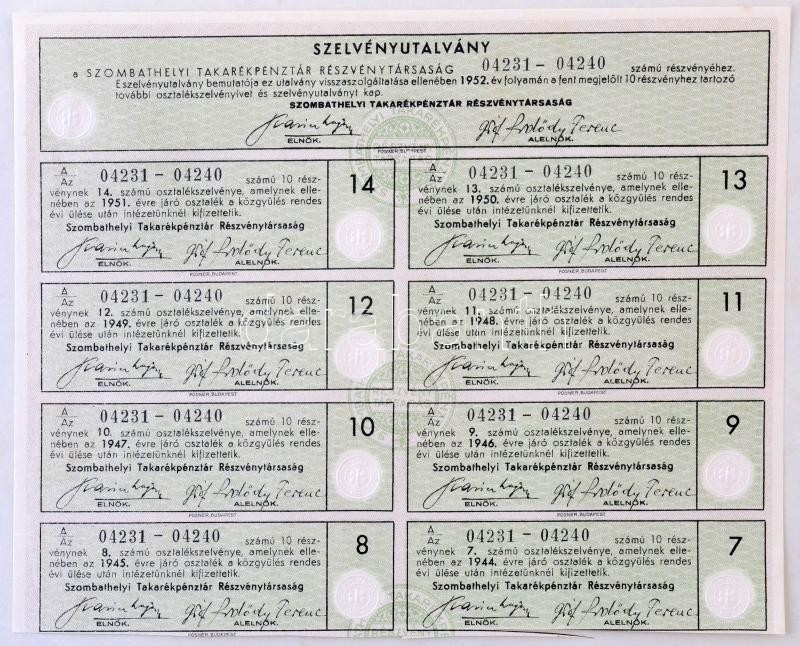 SZELVÉNYUTALVÁNY
a SZOMBATHELYI TAKARÉKPÉNZTÁR RÉSZVÉNYTÁRSASÁG 04231 - 04240 számú részvényéhez.
E szelvényutalvány bemutatója ez utalvány visszaszolgáltatása ellenében 1952. év folyamán a fent megjelölt 10 részvényhez tartozó
további osztalékszelvényivet és szelvényutalványt kap.
SZOMBATHELYI TAKARÉKPÉNZTÁR RÉSZVÉNYTÁRSASÁG
Gróf Erdődy Ferenc
ELNÖK. ALELNÖK.
POSNER, BUDAPEST
A/Az 04231 - 04240 számú 10 rész-
vénynek 14. számú osztalékszelvénye, amelynek elle-
nében az 1951. évre járó osztalék a közgyűlés rendes
évi ülése után intézetünknél kifizettetik.
Szombathelyi Takarékpénztár Részvénytársaság
Gróf Erdődy Ferenc
ELNÖK. ALELNÖK.
14
POSNER, BUDAPEST
A/Az 04231 - 04240 számú 10 rész-
vénynek 13. számú osztalékszelvénye, amelynek elle-
nében az 1950. évre járó osztalék a közgyűlés rendes
évi ülése után intézetünknél kifizettetik.
Szombathelyi Takarékpénztár Részvénytársaság
Gróf Erdődy Ferenc
ELNÖK. ALELNÖK.
13
POSNER, BUDAPEST
A/Az 04231 - 04240 számú 10 rész-
vénynek 12. számú osztalékszelvénye, amelynek elle-
nében az 1949. évre járó osztalék a közgyűlés rendes
évi ülése után intézetünknél kifizettetik.
Szombathelyi Takarékpénztár Részvénytársaság
Gróf Erdődy Ferenc
ELNÖK. ALELNÖK.
12
POSNER, BUDAPEST
A/Az 04231 - 04240 számú 10 rész-
vénynek 11. számú osztalékszelvénye, amelynek elle-
nében az 1948. évre járó osztalék a közgyűlés rendes
évi ülése után intézetünknél kifizettetik.
Szombathelyi Takarékpénztár Részvénytársaság
Gróf Erdődy Ferenc
ELNÖK. ALELNÖK.
11
POSNER, BUDAPEST
A/Az 04231 - 04240 számú 10 rész-
vénynek 10. számú osztalékszelvénye, amelynek elle-
nében az 1947. évre járó osztalék a közgyűlés rendes
évi ülése után intézetünknél kifizettetik.
Szombathelyi Takarékpénztár Részvénytársaság
Gróf Erdődy Ferenc
ELNÖK. ALELNÖK.
10
POSNER, BUDAPEST
A/Az 04231 - 04240 számú 10 rész-
vénynek 9. számú osztalékszelvénye, amelynek elle-
nében az 1946. évre járó osztalék a közgyűlés rendes
évi ülése után intézetünknél kifizettetik.
Szombathelyi Takarékpénztár Részvénytársaság
Gróf Erdődy Ferenc
ELNÖK. ALELNÖK.
9
POSNER, BUDAPEST
A/Az 04231 - 04240 számú 10 rész-
vénynek 8. számú osztalékszelvénye, amelynek elle-
nében az 1945. évre járó osztalék a közgyűlés rendes
évi ülése után intézetünknél kifizettetik.
Szombathelyi Takarékpénztár Részvénytársaság
Gróf Erdődy Ferenc
ELNÖK. ALELNÖK.
8
POSNER, BUDAPEST
A/Az 04231 - 04240 számú 10 rész-
vénynek 7. számú osztalékszelvénye, amelynek elle-
nében az 1944. évre járó osztalék a közgyűlés rendes
évi ülése után intézetünknél kifizettetik.
Szombathelyi Takarékpénztár Részvénytársaság
Gróf Erdődy Ferenc
ELNÖK. ALELNÖK.
7